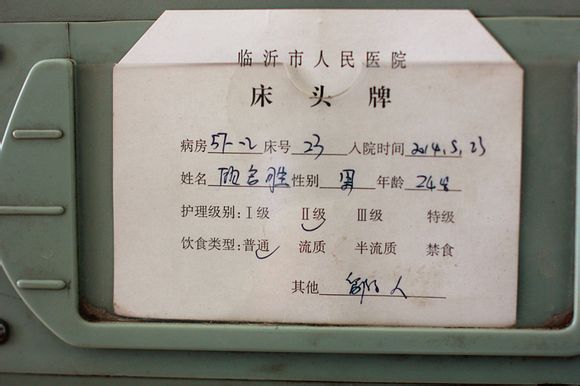 临沂市人民医院
床头牌
病房 51-2 床号 23 入院时间 2014.5.23
姓名 性别 男 年龄 24岁
护理级别: Ⅰ级 Ⅱ级 Ⅲ级 特级
饮食类型: 普通 流质 半流质 禁食
其他 人